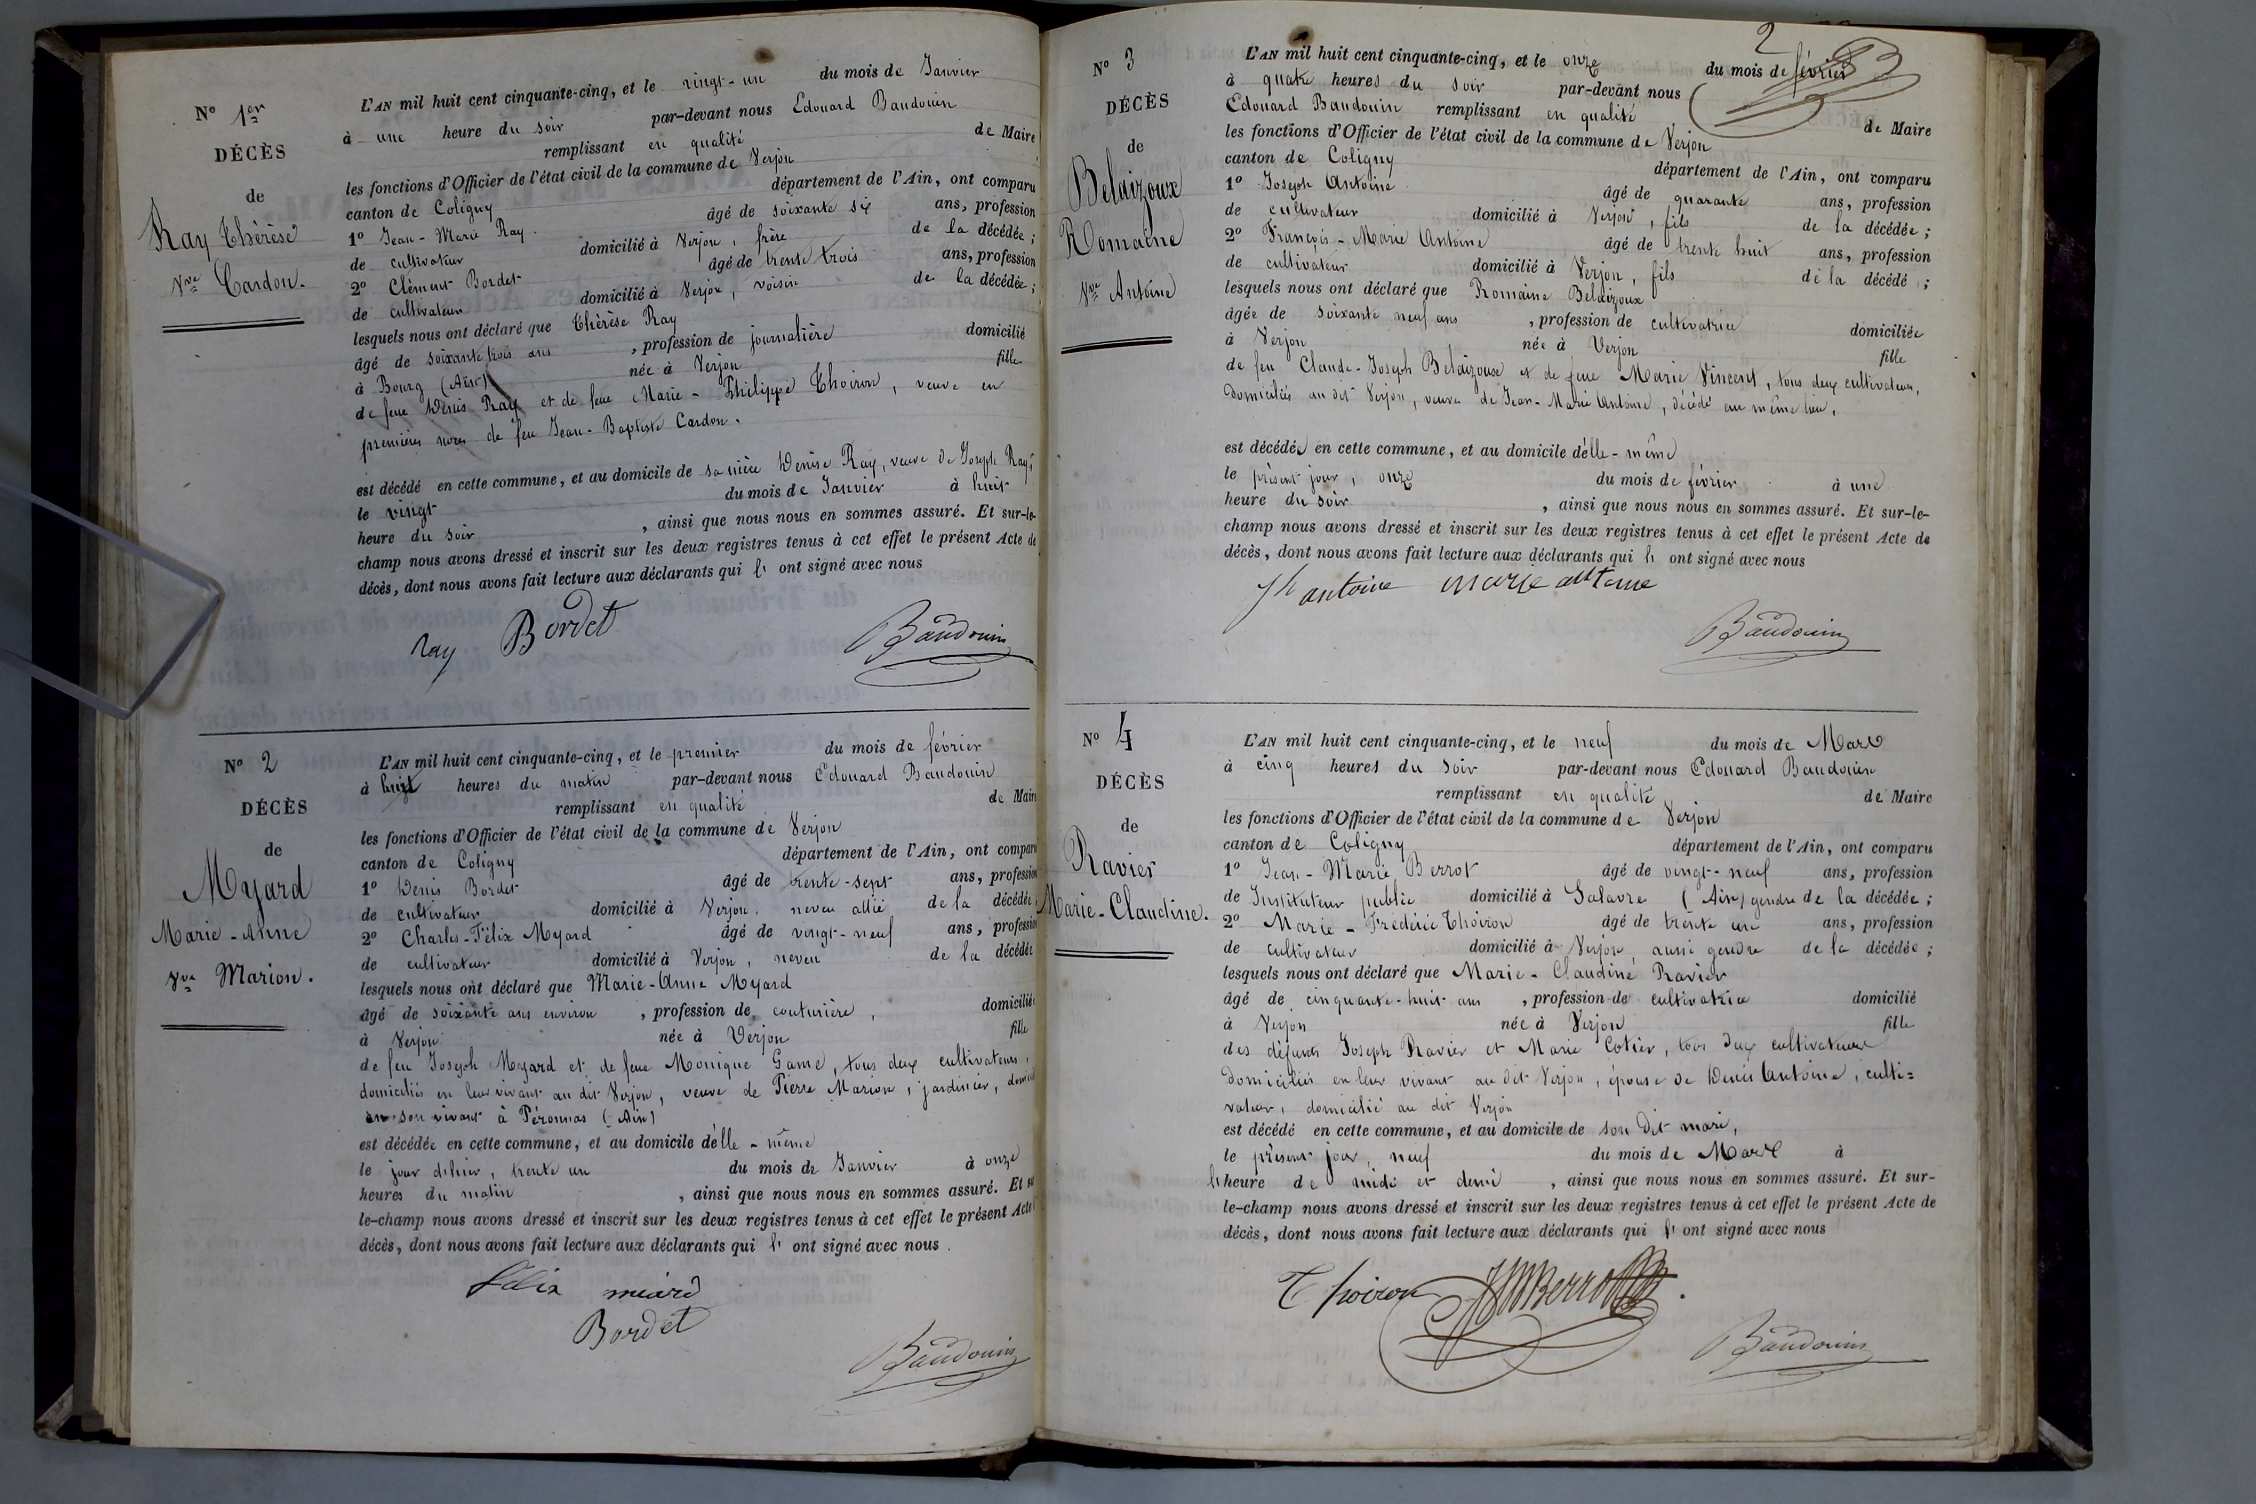 N° 1er
DÉCÈS
de
Ray Thérèse
Vve Cardon.
L'AN mil huit cent cinquante-cinq, et le vingt-un du mois de Janvier
à une heure du soir par-devant nous Edouard Baudouin
remplissant en qualité de Maire
les fonctions d'Officier de l'état civil de la commune de Verjon
canton de Coligny département de l'Ain, ont comparu
1° Jean-Marie Ray âgé de soixante six ans, profession
de cultivateur domicilié à Verjon, frère de la décédée;
2° Clément Bordet âgé de trente trois ans, profession
de cultivateur domicilié à Verjon, voisin de la décédée;
lesquels nous ont déclaré que Thérèse Ray
âgé de soixante trois ans, profession de journalière domicilié
à Bourg (Ain) née à Verjon fille
de feu Denis Ray et de feue Marie-Philippe Thoiron, veuve en
premières noces de feu Jean-Baptiste Cardon.
est décédé en cette commune, et au domicile de sa nièce Denise Ray, veuve de Joseph Ray,
le vingt du mois de Janvier à huit
heure du soir, ainsi que nous nous en sommes assuré. Et sur-le-
champ nous avons dressé et inscrit sur les deux registres tenus à cet effet le présent Acte de
décès, dont nous avons fait lecture aux déclarants qui ont signé avec nous
Ray Bordet Baudouin
N° 2
DÉCÈS
de
Myard
Marie-Anne
Vve Marion.
L'AN mil huit cent cinquante-cinq, et le premier du mois de février
à huit heures du matin par-devant nous Edouard Baudouin
remplissant en qualité de Maire
les fonctions d'Officier de l'état civil de la commune de Verjon
canton de Coligny département de l'Ain, ont comparu
1° Denis Bordet âgé de trente-sept ans, profession
de cultivateur domicilié à Verjon, neveu allié de la décédée
2° Charles-Félix Myard âgé de vingt-neuf ans, profession
de cultivateur domicilié à Verjon, neveu de la décédée
lesquels nous ont déclaré que Marie-Anne Myard
âgé de soixante ans environ, profession de couturière, domiciliée
à Verjon née à Verjon fille
de feu Joseph Myard et de feue Monique Game, tous deux cultivateurs,
domiciliés en leur vivant au dit Verjon, veuve de Pierre Marion, jardinier,
en son vivant à Péronnas (Ain)
est décédée en cette commune, et au domicile d'elle-même
le jour d'hier, trente un du mois de Janvier à onze
heures du matin, ainsi que nous nous en sommes assuré. Et sur
le-champ nous avons dressé et inscrit sur les deux registres tenus à cet effet le présent Acte
décès, dont nous avons fait lecture aux déclarants qui ont signé avec nous.
Félix méard
Bordet
Baudouin
2
N° 3
DÉCÈS
de
Belaizoux
Romaine
Vve Antoine
L'AN mil huit cent cinquante-cinq, et le onze du mois de février
à quatre heures du soir par-devant nous
Edouard Baudouin remplissant en qualité de Maire
les fonctions d'Officier de l'état civil de la commune de Verjon
canton de Coligny département de l'Ain, ont comparu
1° Joseph Antoine âgé de quarante ans, profession
de cultivateur domicilié à Verjon, fils de la décédée;
2° François-Marie Antoine âgé de trente huit ans, profession
de cultivateur domicilié à Verjon, fils de la décédé;
lesquels nous ont déclaré que Romaine Belaizoux
âgée de soixante neuf ans, profession de cultivatrice domiciliée
à Verjon née à Verjon fille
de feu Claude-Joseph Belaizoux et de feue Marie Vincent, tous deux cultivateurs,
domiciliés au dit Verjon, veuve de Jean-Marie Antoine, décédé au même lieu.
est décédée en cette commune, et au domicile d'elle-même
le présent jour, onze du mois de février à une
heure du soir, ainsi que nous nous en sommes assuré. Et sur-le-
champ nous avons dressé et inscrit sur les deux registres tenus à cet effet le présent Acte de
décès, dont nous avons fait lecture aux déclarants qui ont signé avec nous
Jh antoine marie antoine
Baudouin
N° 4
DÉCÈS
de
Ravier
Marie-Claudine.
L'AN mil huit cent cinquante-cinq, et le neuf du mois de Mars
à cinq heures du soir par-devant nous Edouard Baudouin
remplissant en qualité de Maire
les fonctions d'Officier de l'état civil de la commune de Verjon
canton de Coligny département de l'Ain, ont comparu
1° Jean-Marie Berrot âgé de vingt-neuf ans, profession
de Instituteur public domicilié à Salavre (Ain) gendre de la décédée;
2° Marie-Frédéric Thoiron âgé de trente un ans, profession
de cultivateur domicilié à Verjon, aussi gendre de la décédée;
lesquels nous ont déclaré que Marie-Claudine Ravier
âgé de cinquante-huit ans, profession de cultivatrice domicilié
à Verjon née à Verjon fille
des défunts Joseph Ravier et Marie Cotier, tous deux cultivateurs
domiciliés en leur vivant au dit Verjon, épouse de Denis Antoine, culti=
vateur, domicilié au dit Verjon
est décédé en cette commune, et au domicile de son dit mari,
le présent jour, neuf du mois de Mars à
l'heure de midi et demi, ainsi que nous nous en sommes assuré. Et sur-
le-champ nous avons dressé et inscrit sur les deux registres tenus à cet effet le présent Acte de
décès, dont nous avons fait lecture aux déclarants qui ont signé avec nous
Thoiron JMBerrot
Baudouin